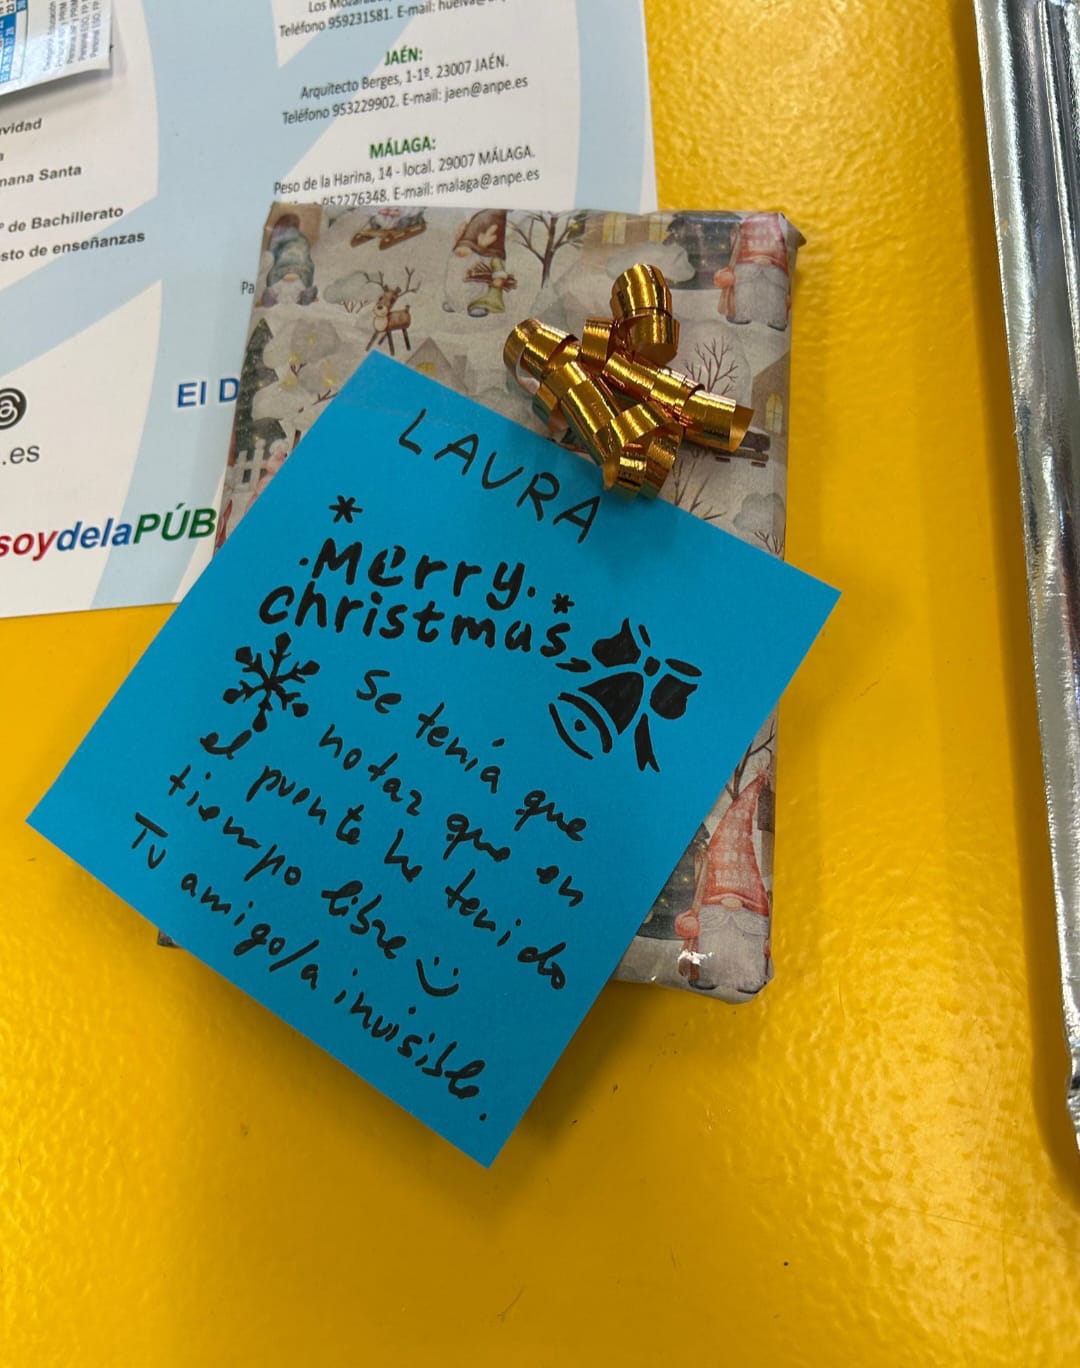 Teléfono 959231581. E-mail:
JAÉN:
Arquitecto Berges, 1-1º. 23007 JAÉN.
Teléfono 953229902. E-mail: jaen@anpe.es
MÁLAGA:
Peso de la Harina, 14 - local. 29007 MÁLAGA.
952276348. E-mail: malaga@anpe.es
vidad
mana Santa
de Bachillerato
sto de enseñanzas
Pa
El D
.es
soydelaPÚB
LAURA
Merry
christmas
Se tenía que
notar que en
el puente he tenido
tiempo libre
Tu amigo/a invisible.